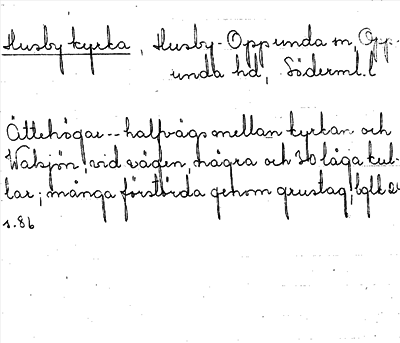 Husby kyrka, Husby-Oppunda sn, Opp-
unda hd, Söderml. l
Ättehögar -- halfvägs mellan kyrkan och
Vaksjön, vid vägen, några och 30 låga kul-
lar; många förstörda genom grustag,
s. 86